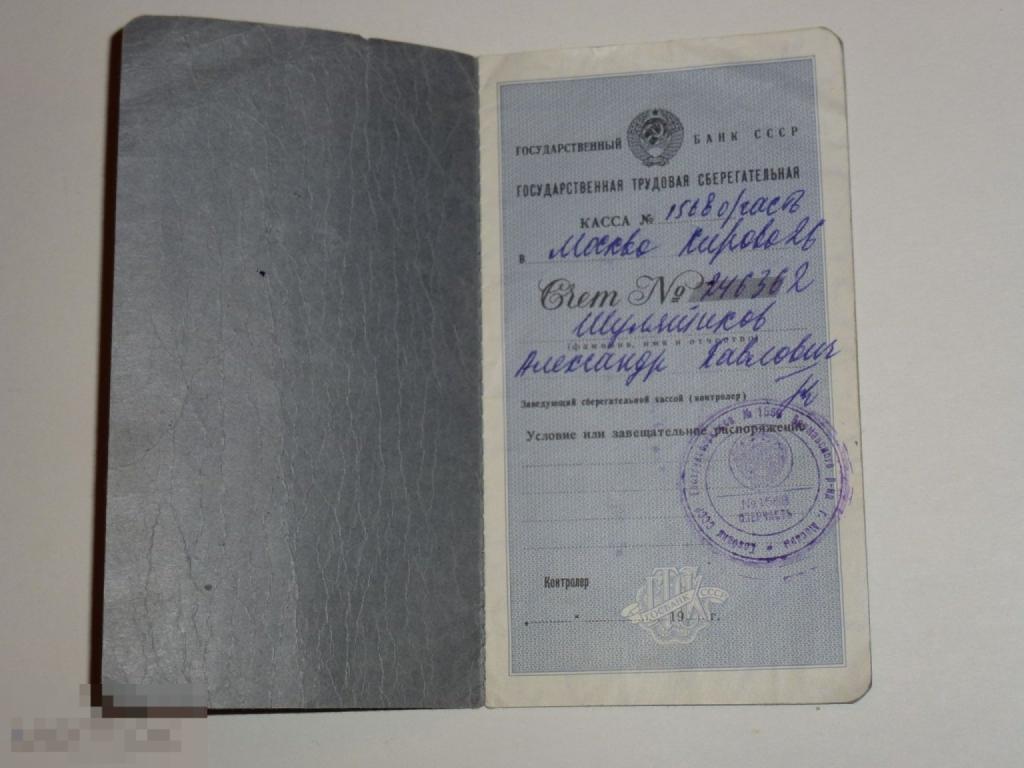 ГОСУДАРСТВЕННЫЙ БАНК СССР
ГОСУДАРСТВЕННАЯ ТРУДОВАЯ СБЕРЕГАТЕЛЬНАЯ
КАССА № 1568
в Москва Кирова 26
Счет № 246362
Шуляйтиков
(фамилия, имя и отчество)
Александр Павлович
Заведующий сберегательной кассой (контролер)
Условие или завещательное распоряжение
№ 1568
Контролер
ГОСБАНК СССР
19 г.